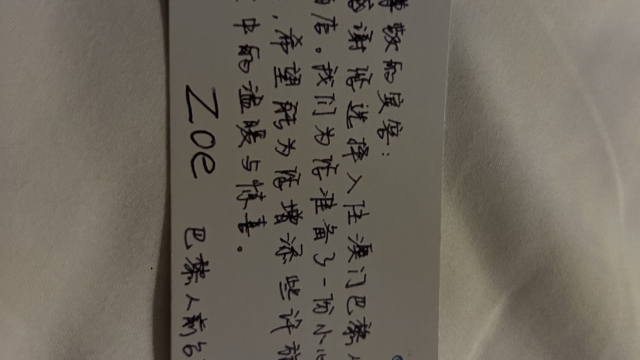 尊敬的宾客:
感谢您选择入住澳门巴黎人
店。我们为您准备了一份小
,希望能为您增添些许旅
中的温暖与惊喜。
Zoe 巴黎人前台